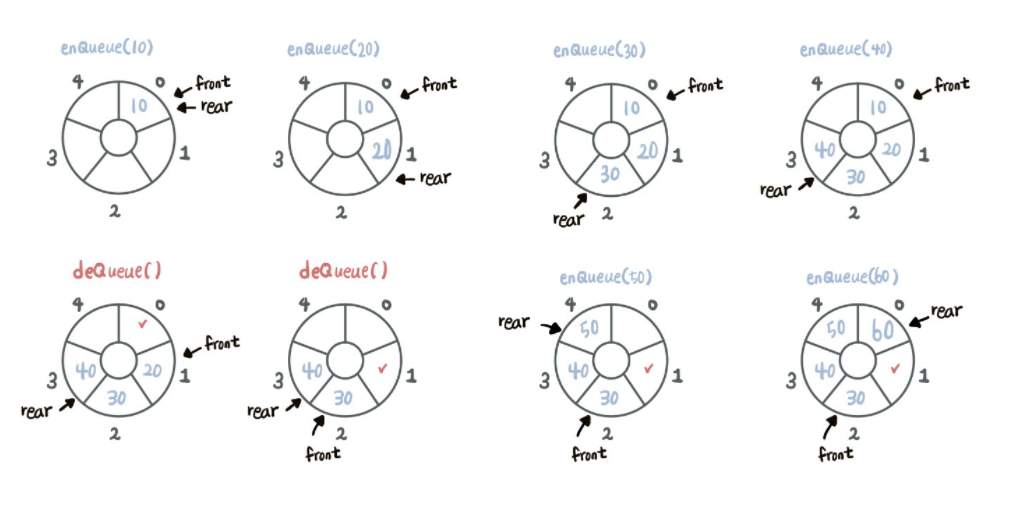 enQueue(10)
4
0
front
10
rear
3
1
2
enQueue(20)
4
0
front
10
20
1
3
rear
2
enQueue(30)
4
0
front
10
20
3
1
30
rear
2
enQueue(40)
4
0
front
10
40
20
3
1
30
rear
2
deQueue()
4
0
front
40
20
3
1
30
rear
2
deQueue()
4
0
40
3
1
30
rear
2
front
enQueue(50)
4
0
rear
50
40
3
1
30
2
front
enQueue(60)
4
0
rear
50
60
40
3
1
30
2
front